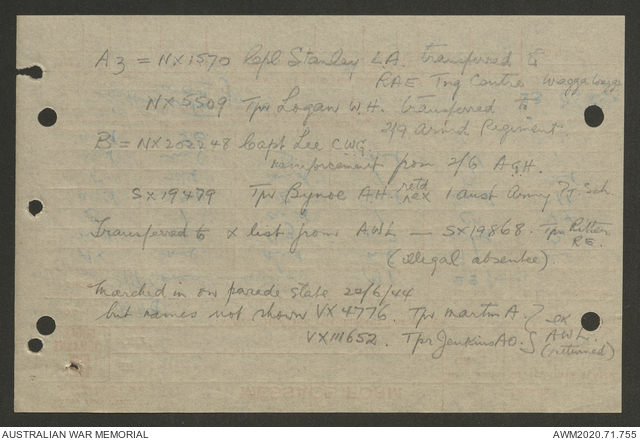 A3 = NX1570 Cpl Stanley L.A. transferred to
RAE Tng Centre Wagga Wagga
NX5509 Tpr Logan W.H. transferred to
2/9 Armd Regiment.
B = NX202248 Capt Lee C.W.G.
reinforcement from 2/6 A.G.H.
SX19479 Tpr Bynoe A.H. retd ex 1 Aust Army Sch.
Transferred to X list from A.W.L — SX19868 Tpr Ritter R.E.
(illegal absentee)
Marched in on parade state 20/6/44
but names not shown VX4776. Tpr Martin A. } ex A.W.L.
VX111652. Tpr Jenkins A.O. } (returned)
AUSTRALIAN WAR MEMORIAL
AWM2020.71.755